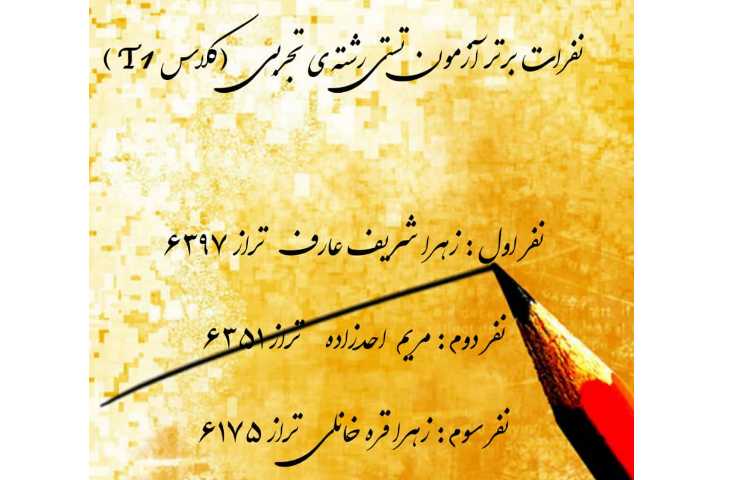 نفرات برتر آزمون تستی رشته‌ی تجربی (کلاس T1)
نفر اول : زهرا شریف عارف تراز ۶۳۹۷
نفر دوم : مریم احدزاده تراز ۶۳۵۱
نفر سوم : زهرا قره خانلی تراز ۶۱۷۵